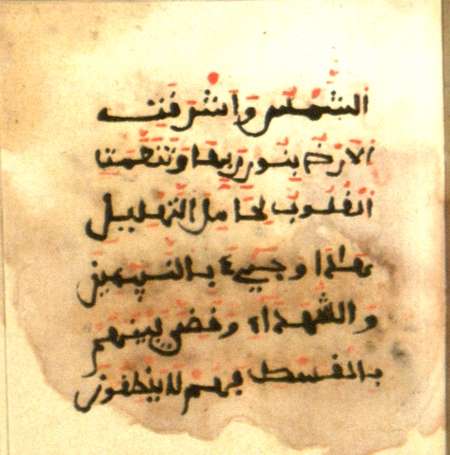 الشمس واشرقت
الارض بنور ربها
القلوب لحامل التهليل
وجيء بالنبيين
والشهداء وقضى بينهم
بالقسط وهم لا يظلمون